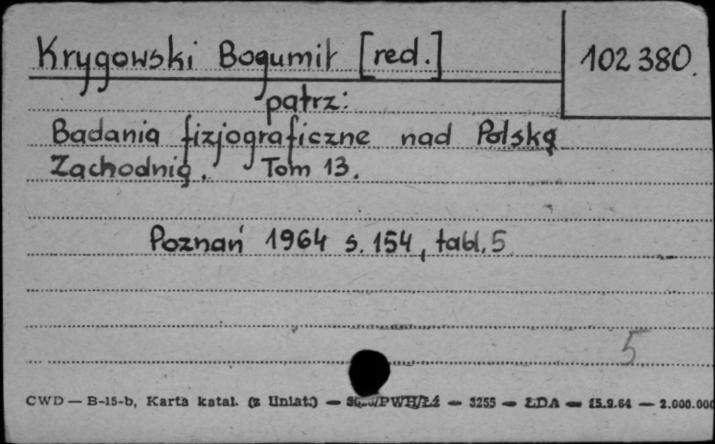 Krygowski Bogumił [red.]
102 380.
patrz:
Badania fizjograficzne nad Polską
Zachodnią. Tom 13.
Poznań 1964 s. 154, tabl. 5
5
CWD — B-15-b, Karta katal. (z liniat.) — PWH/Łź — 3255 — ŁDA — 15.9.64 — 2.000.000